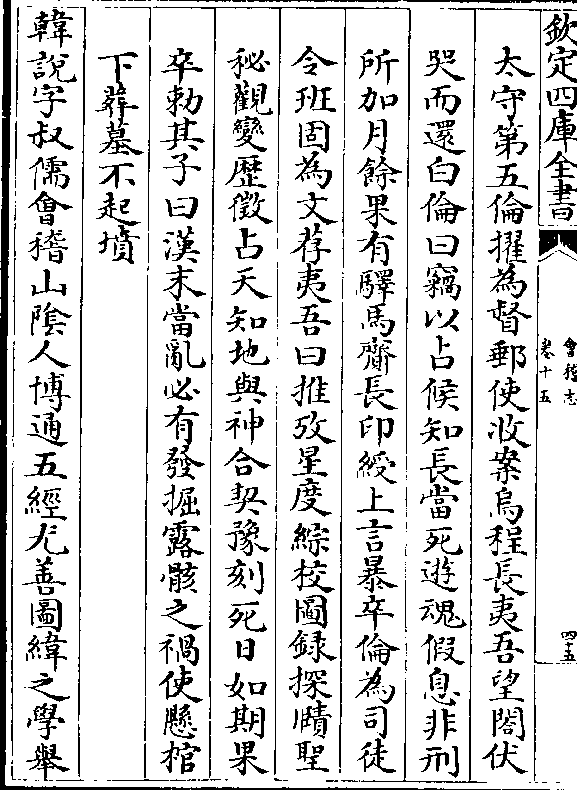 欽定四庫全書
會稽志
卷十五
四十五
太守第五倫擢為督郵使收案烏程長夷吾望閤伏
哭而還白倫曰竊以占候知長當死遊魂假息非刑
所加月餘果有驛馬齎長印綬上言暴卒倫為司徒
令班固為文荐夷吾曰推攷星度綜校圖録探賾聖
秘觀變歴徵占天知地與神合契豫刻死日如期果
卒勅其子曰漢末當亂必有發掘露骸之禍使懸棺
下葬墓不起墳
韓說字叔儒會稽山隂人博通五經尤善圖緯之學舉